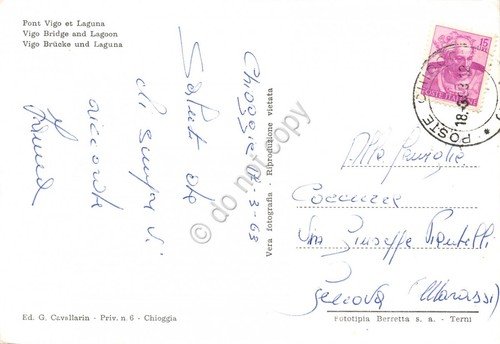 Pont Vigo et Laguna
Vigo Bridge and Lagoon
Vigo Brücke und Laguna
Chioggia 17-3-63
Saluti da
chi sempre vi
ricorda
Ed. G. Cavallarin - Priv. n 6 - Chioggia
Vera fotografia - Riproduzione vietata
15
POSTE ITALIANE
POSTE
18.3.63
Alla Famiglia
Via Giuseppe Piantelli
Genova (Marassi)
Fototipia Berretta s. a. - Terni
© do not copy